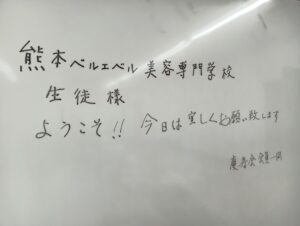 熊本ベルエベル美容専門学校
生徒様
ようこそ!! 今日は宜しくお願い致します